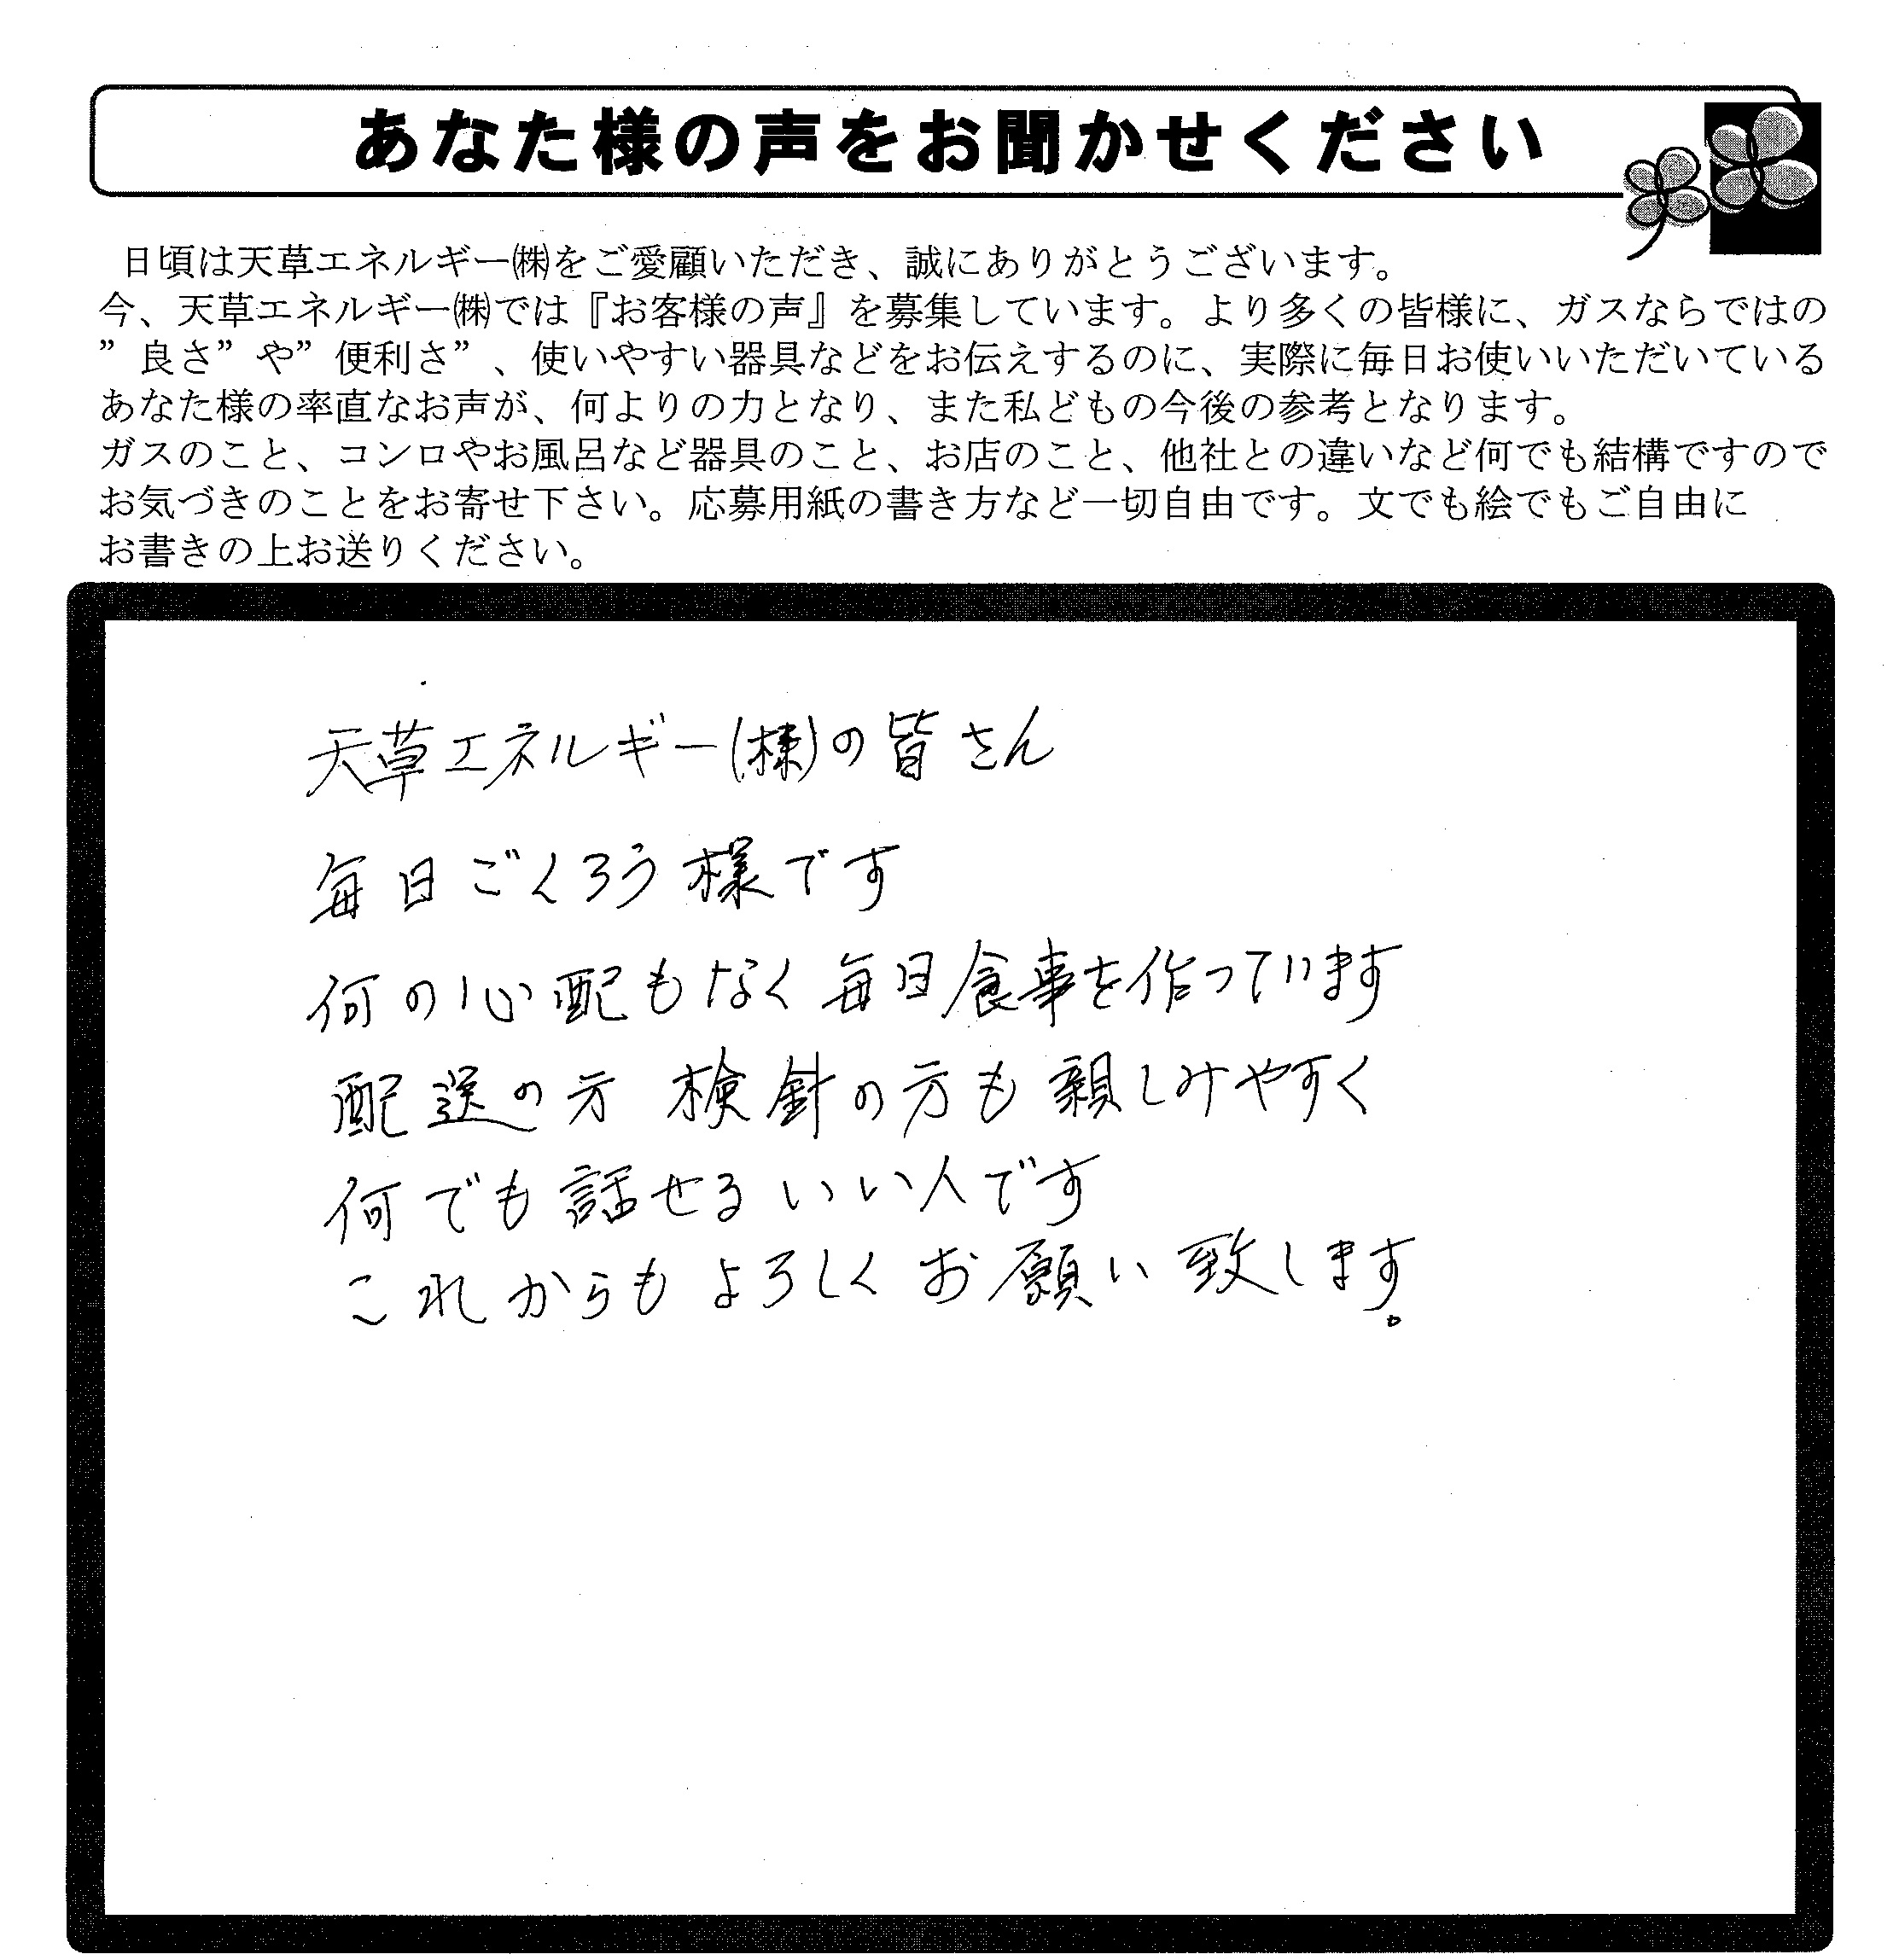 あなた様の声をお聞かせください
日頃は天草エネルギー㈱をご愛顧いただき、誠にありがとうございます。
今、天草エネルギー㈱では『お客様の声』を募集しています。より多くの皆様に、ガスならではの
”良さ”や”便利さ”、使いやすい器具などをお伝えするのに、実際に毎日お使いいただいている
あなた様の率直なお声が、何よりの力となり、また私どもの今後の参考となります。
ガスのこと、コンロやお風呂など器具のこと、お店のこと、他社との違いなど何でも結構ですので
お気づきのことをお寄せ下さい。応募用紙の書き方など一切自由です。文でも絵でもご自由に
お書きの上お送りください。
天草エネルギー(株)の皆さん
毎日ごくろう様です
何の心配もなく毎日食事を作っています
配送の方 検針の方も親しみやすく
何でも話せるいい人です
これからもよろしくお願い致します。